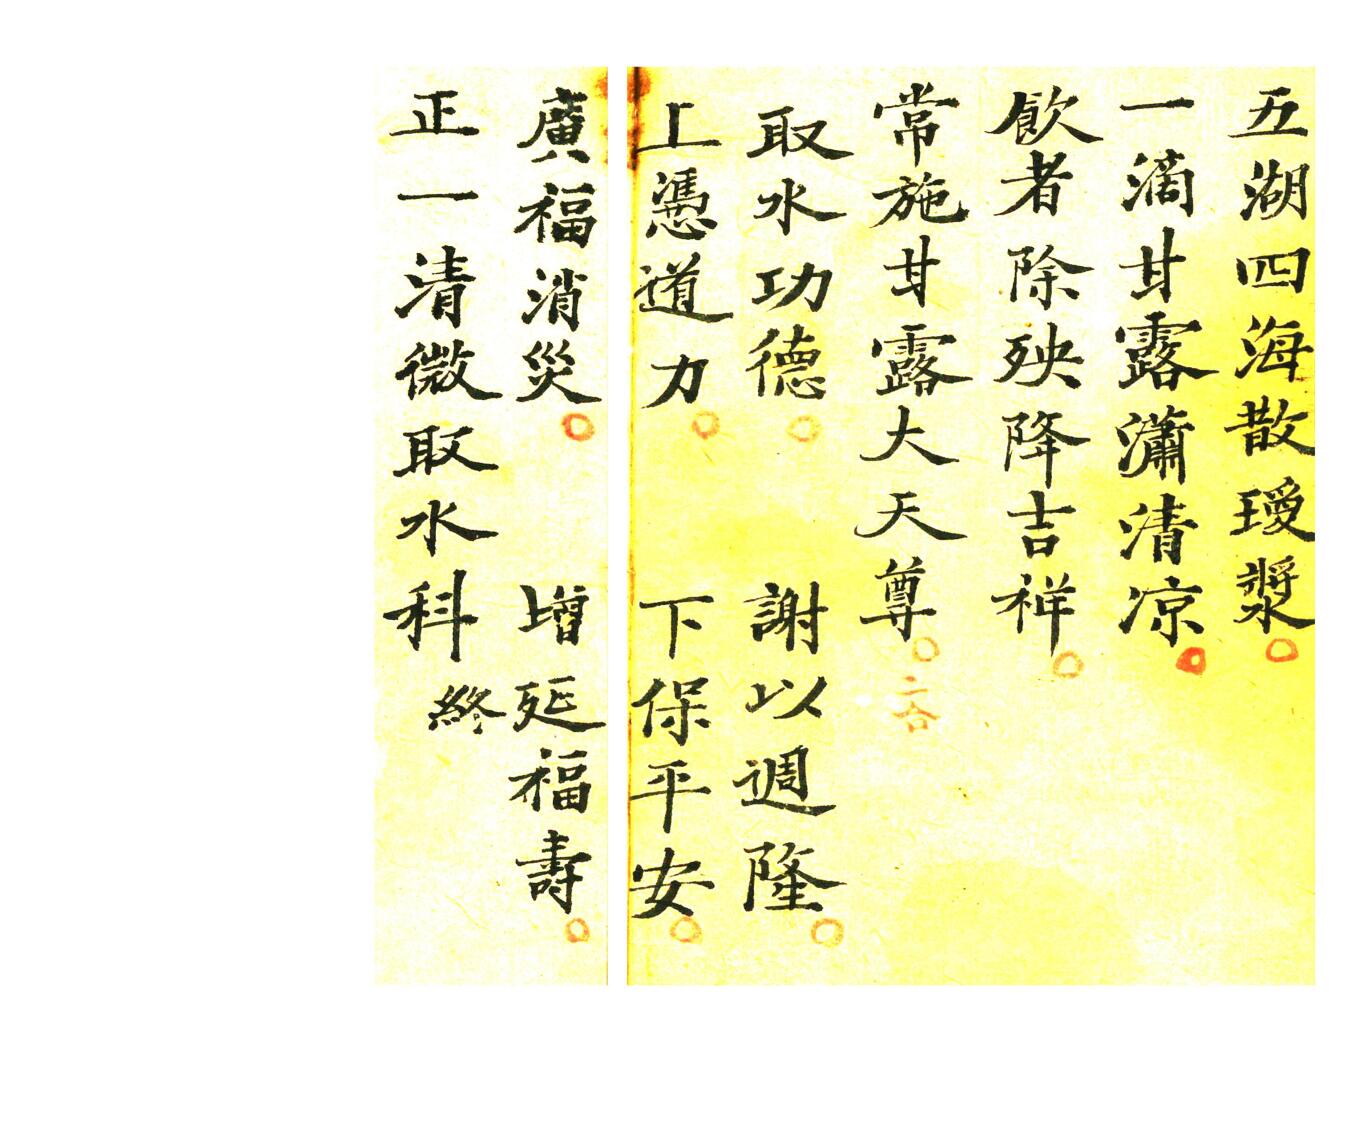 五湖四海散璦漿
一滴甘露瀟清凉
飲者除殃降吉祥
常施甘露大天尊 二合
取水功德 謝以週隆
上憑道力 下保平安
廣福消災 增延福壽
正一清微取水科 終